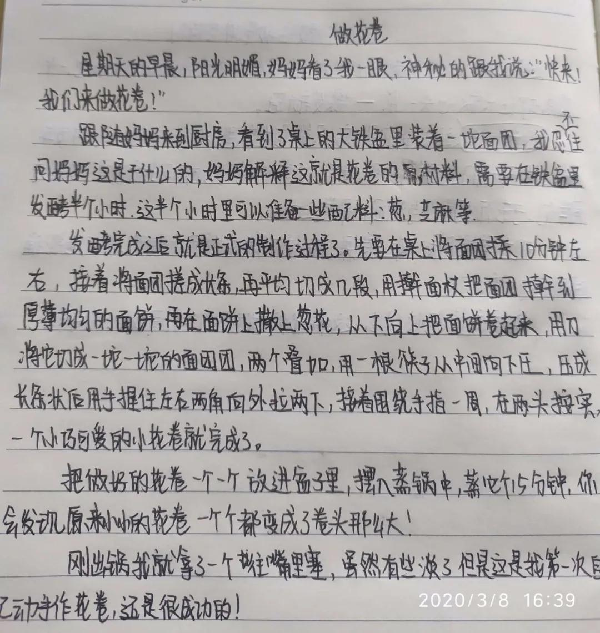 做花卷
星期天的早晨,阳光明媚,妈妈看了我一眼,神秘的跟我说:"快来!
我们来做花卷!"
跟随妈妈来到厨房,看到了桌上的大铁盆里装着一坨面团,我忍不住
问妈妈这是干什么的,妈妈解释这就是花卷的原材料,需要在铁盆里
发酵半个小时.这半个小时里可以准备一些配料:葱,芝麻等.
发酵完成之后就是正式的制作过程了。先要在桌上将面团揉10分钟左
右,接着将面团搓成长条,再平均切成几段,用擀面杖把面团擀到
厚薄均匀的面饼,再在面饼上撒上葱花,从下向上把面饼卷起来,用刀
将它切成一坨一坨的面团团,两个叠加,用一根筷子从中间向下压,压成
长条状后用手捏住左右两角向外拉两下,接着围绕手指一周,在两头按实,
一个小巧可爱的小花卷就完成了。
把做好的花卷一个一个放进盆子里,摆入蒸锅中,蒸它个15分钟,你
会发现原来小小的花卷一个个都变成了卷头那么大!
刚出锅我就拿了一个往嘴里塞,虽然有些淡了但是这是我第一次自
己动手作花卷,还是很成功的!
2020/3/8 16:39